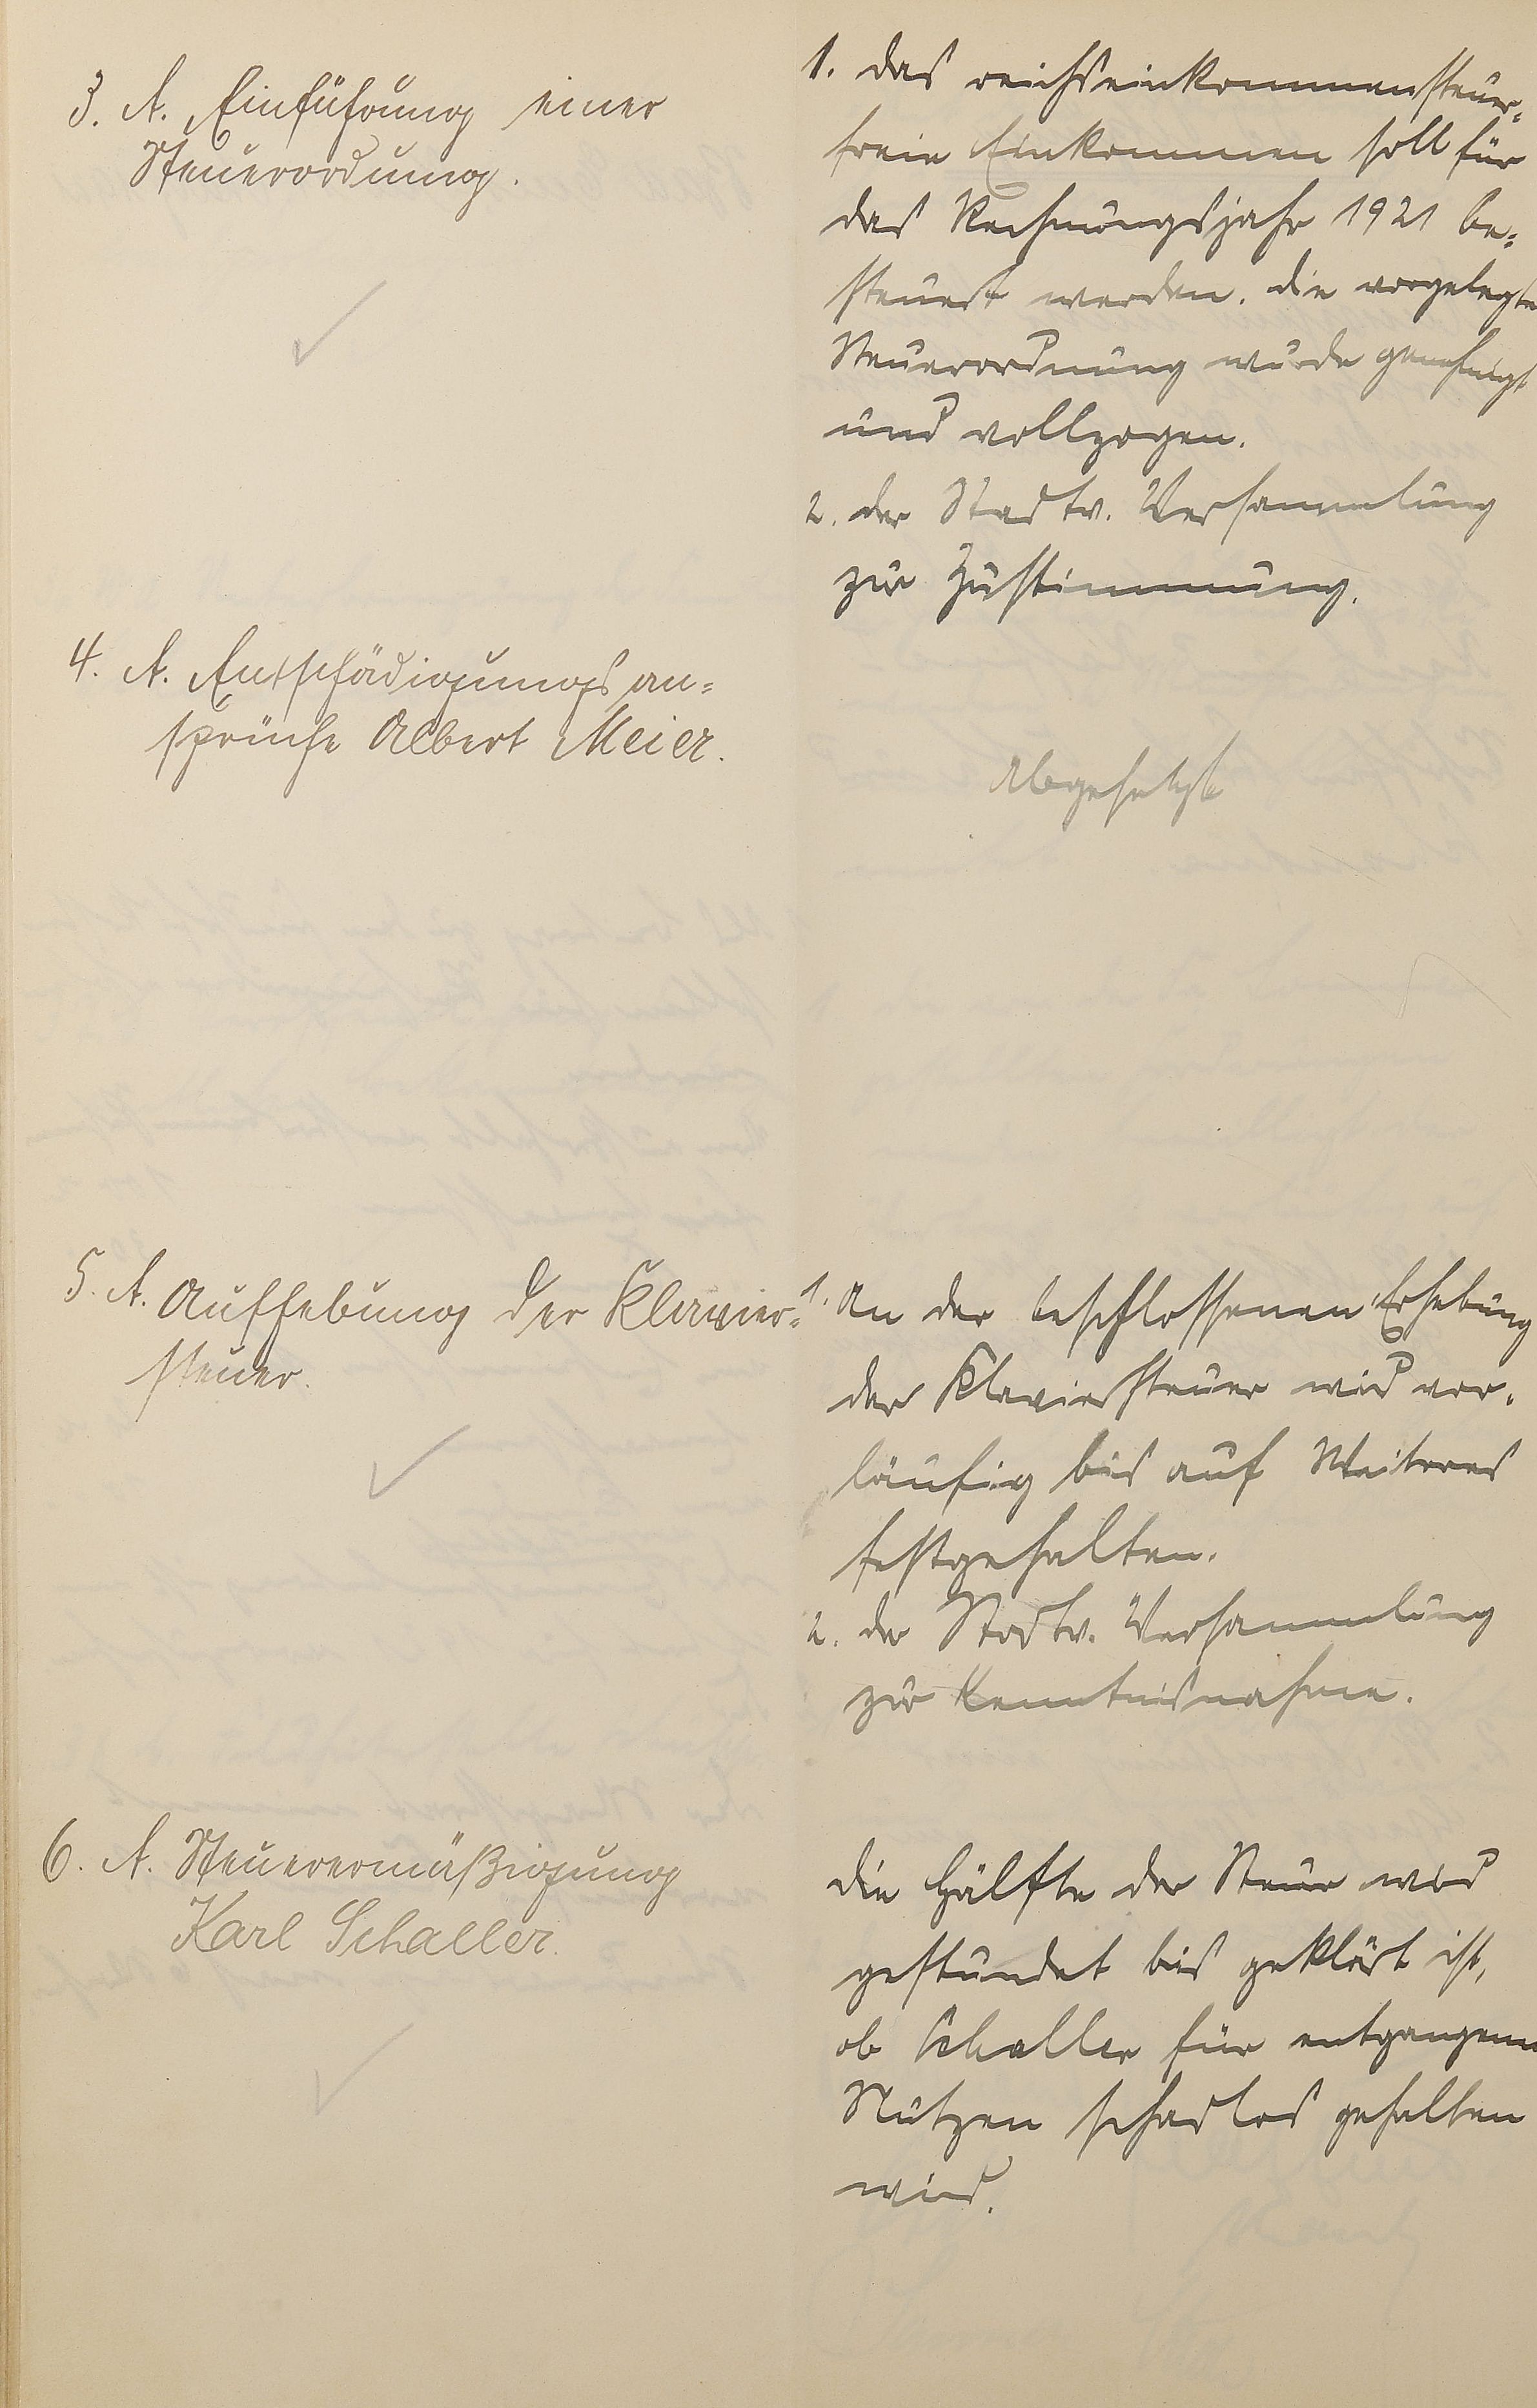 3. A. Einführung einer
Steuerordnung.
1. Das reichseinkommensteuer-
freie Einkommen soll für
das Rechnungsjahr 1921 be-
steuert werden. Die vorgelegte
Steuerordnung wurde genehmigt
und vollzogen.
2. der Stadtv. Versammlung
zur Zustimmung.
4. A. Entschädigungsan-
sprüche Albert Meier.
Abgesetzt
5. A. Aufhebung der Klavier-
steuer.
1. An der beschlossenen Erhebung
der Klaviersteuer wird vor-
läufig bis auf Weiteres
festgehalten.
2. der Stadtv. Versammlung
zur Kenntnisnahme.
6. A. Steuerermäßigung
Karl Schaller.
Die Hälfte der Steuer wird
gestundet bis geklärt ist,
ob Schaller für entgangenen
Nutzen schadlos gehalten
wird.